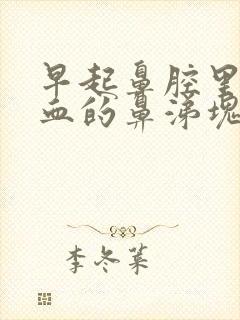 早起鼻腔里
血的鼻涕块
李冬菜